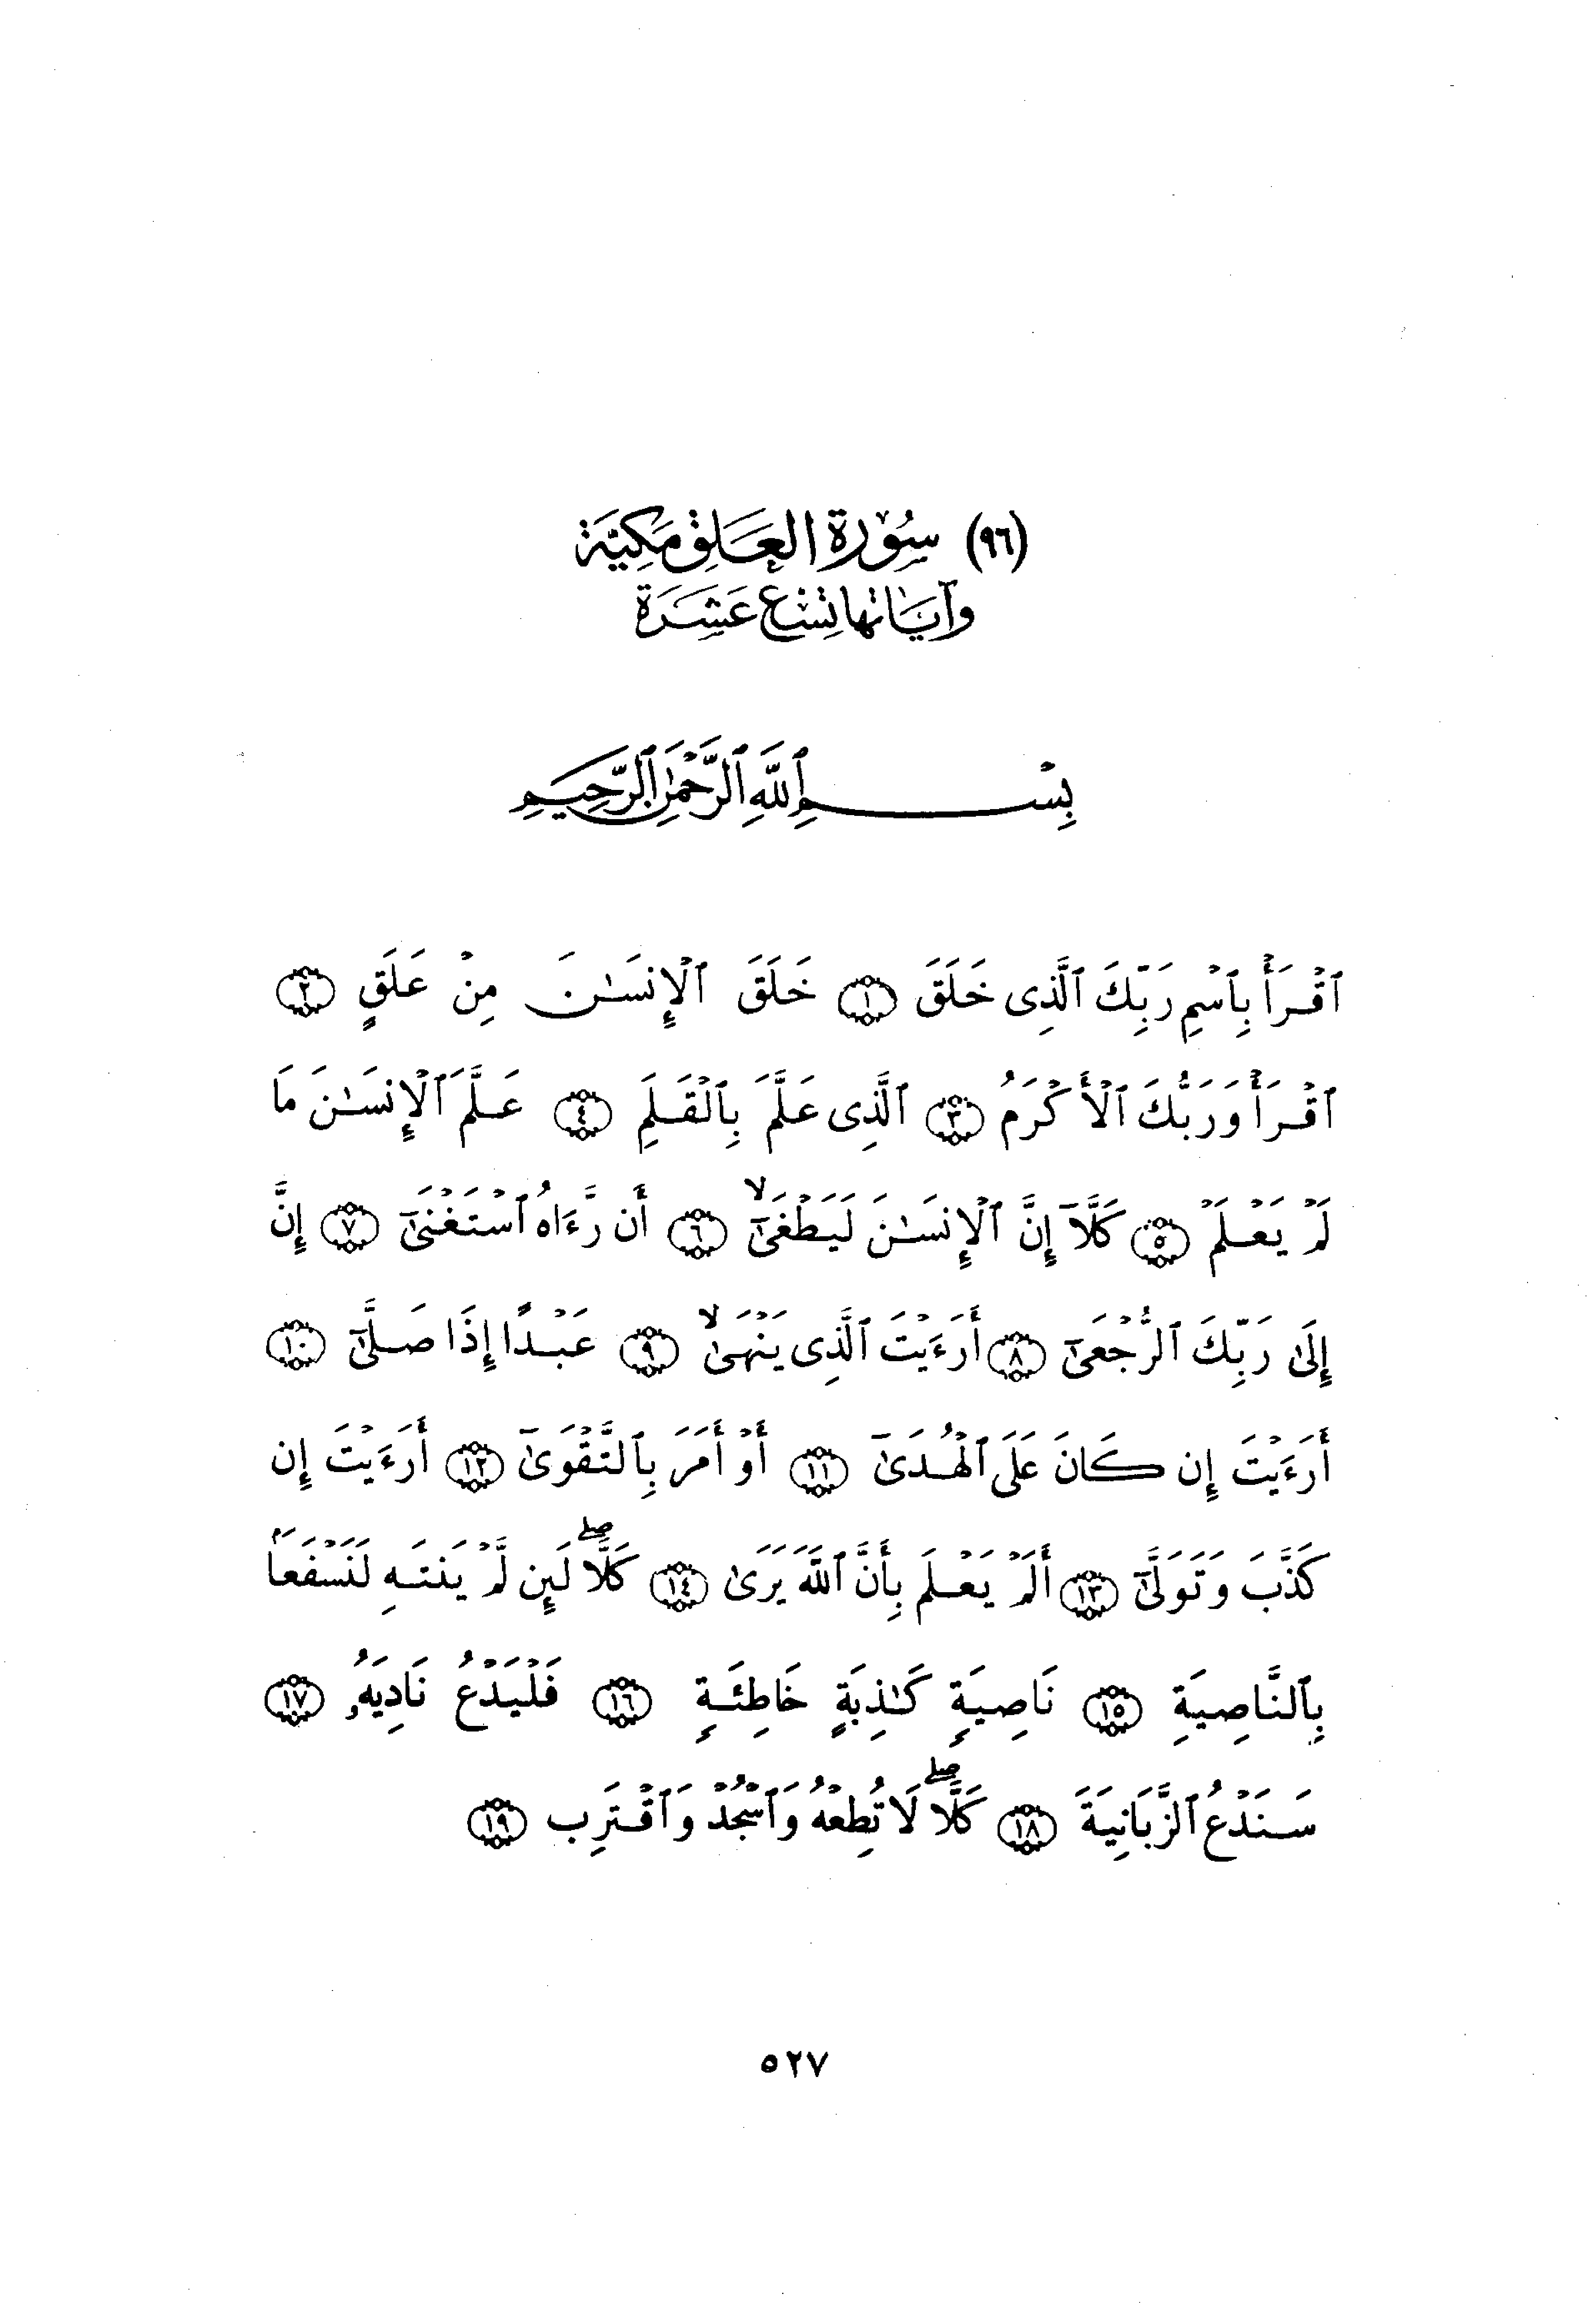 (٩٦) سُوْرَة العَلَقِ مَكِيَّة
وَآيَاتهَا تِسْع عَشَرَة
بِسْمِ ٱللَّهِ ٱلرَّحْمَٰنِ ٱلرَّحِيمِ
ٱقْرَأْ بِٱسْمِ رَبِّكَ ٱلَّذِى خَلَقَ ١ خَلَقَ ٱلْإِنسَٰنَ مِنْ عَلَقٍ ٢
ٱقْرَأْ وَرَبُّكَ ٱلْأَكْرَمُ ٣ ٱلَّذِى عَلَّمَ بِٱلْقَلَمِ ٤ عَلَّمَ ٱلْإِنسَٰنَ مَا
لَمْ يَعْلَمْ ٥ كَلَّآ إِنَّ ٱلْإِنسَٰنَ لَيَطْغَىٰٓ ۙ ٦ أَن رَّءَاهُ ٱسْتَغْنَىٰٓ ٧ إِنَّ
إِلَىٰ رَبِّكَ ٱلرُّجْعَىٰٓ ٨ أَرَءَيْتَ ٱلَّذِى يَنْهَىٰ ۙ ٩ عَبْدًا إِذَا صَلَّىٰٓ ١٠
أَرَءَيْتَ إِن كَانَ عَلَى ٱلْهُدَىٰٓ ١١ أَوْ أَمَرَ بِٱلتَّقْوَىٰٓ ١٢ أَرَءَيْتَ إِن
كَذَّبَ وَتَوَلَّىٰٓ ١٣ أَلَمْ يَعْلَم بِأَنَّ ٱللَّهَ يَرَىٰ ١٤ كَلَّا ۖ لَئِن لَّمْ يَنتَهِ لَنَسْفَعَۢا
بِٱلنَّاصِيَةِ ١٥ نَاصِيَةٍ كَٰذِبَةٍ خَاطِئَةٍ ١٦ فَلْيَدْعُ نَادِيَهُۥ ١٧
سَنَدْعُ ٱلزَّبَانِيَةَ ١٨ كَلَّا ۖ لَا تُطِعْهُ وَٱسْجُدْ وَٱقْتَرِب ١٩
٥٢٧